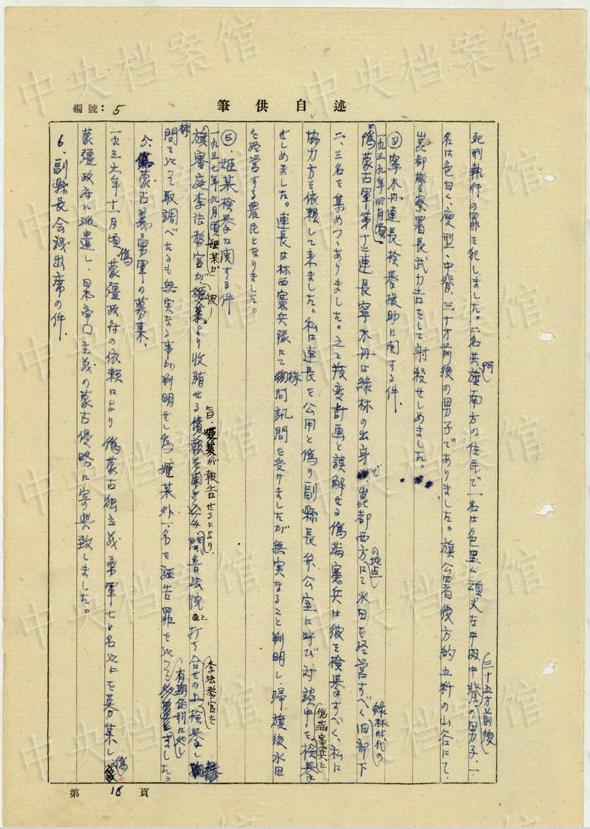 述自供筆
編號：5
死刑執行の罪を犯しました。二名共阿旗南方の住民で一名は色黒く頑丈な中肉中背の男子、三十五才前後一
名は色白く痩型、中背三十才前後の男子でありました。旗公署後方約五粁の山谷にて、
崑都警察署長武力吉をして射殺せしめました。
(4)寧木丹連長検挙援助に関する件、
一九三九年四月頃、
偽蒙古軍第十二連長寧木丹は緑林の出身で、崑都西方の地点にて水田を経営すべく緑林時代の旧部下
二、三名を集めつゝありました。之を叛変計画と誤解せる偽満憲兵は彼を検挙すべく、私に
協力方を依頼して来ました。私は連長を公用と偽り副縣長弁公室に呼び対談中を偽満憲兵に検挙
せしめました。連長は林西憲兵隊にて拷問訊問を受けましたが無実なること判明し、帰旗後水田
を経営する農民となりました。
(5)姫某検挙に関する件
一九三七年九月頃、姫某が
旗審庭李法教官が
旨、姫某が報告せるにより、
李法教官を
問を以て取調べたるも無実なる事が判明せし為、姫某外一名を誣告罪を以て
有期徒刑に処し
ました。
5、偽蒙古義勇軍の募集、
一九三六年十一月頃偽蒙疆政府の依頼により偽蒙古独立義勇軍七〇名以上を募集し、偽
蒙疆政府に派遣し、日本帝国主義の蒙古侵略に寄与致しました。
6、副縣長会議出席の件、
第 16 頁
中央档案馆